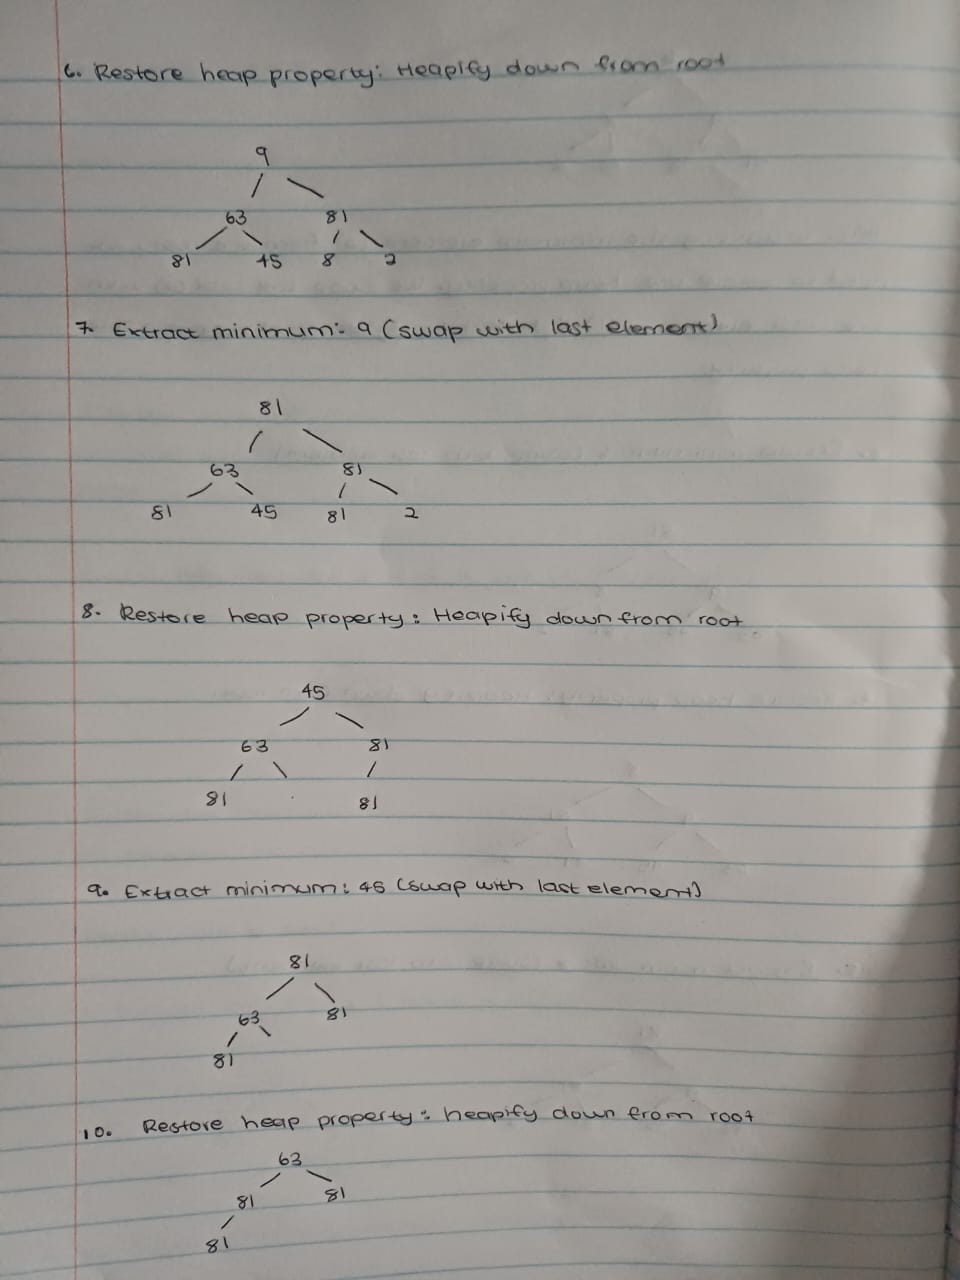 6. Restore heap property: Heapify down from root
9
63 81
81 45 8 2
7. Extract minimum: 9 (swap with last element)
81
63 81
81 45 81 2
8. Restore heap property: Heapify down from root
45
63 81
81 81
9. Extract minimum: 45 (swap with last element)
81
63 81
81
10. Restore heap property: heapify down from root
63
81 81
81